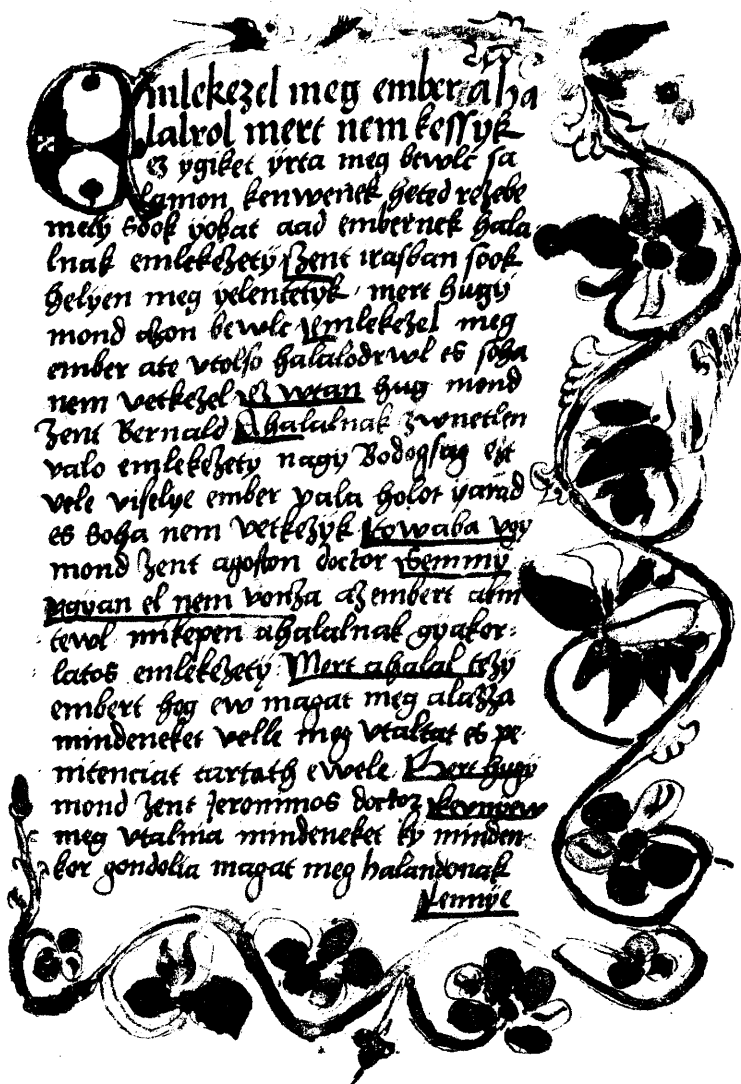 Emlekezel meg ember a ha
lalrol mert nem kessyk
ez ygiket yrta meg bewlc sa
lamon kenwenek heted rezebe
mely sook yobat aad embernek hala
lnak emlekezety Szent irasban sook
helyen meg yelentetyk mert hugy
mond azon bewlc Emlekezel meg
ember ate vtolso halalodrwl es soha
nem vetkezel Ez wtan hug mond
zent Bernald Ahalalnak zwnetlen
valo emlekezety nagy Bodogsag ezt
vele viselye ember vala holot yarad
es soha nem vetkezyk Towaba vgy
mond zent agoston doctor Semmy
vgyan el nem vonza azembert alm
tewl mikepen ahalalnak gyaker-
latos emlekezety Mert ahalal tezy
embert hog ew magat meg alazza
mindeneket velle meg vtaltat es pe-
nitenciat tartath ewele Mert hugy
mond zent Jeronimos doctor keunyew
meg vtalnia mindeneket ky minden-
kor gondolia magat meg halandonak
lennye